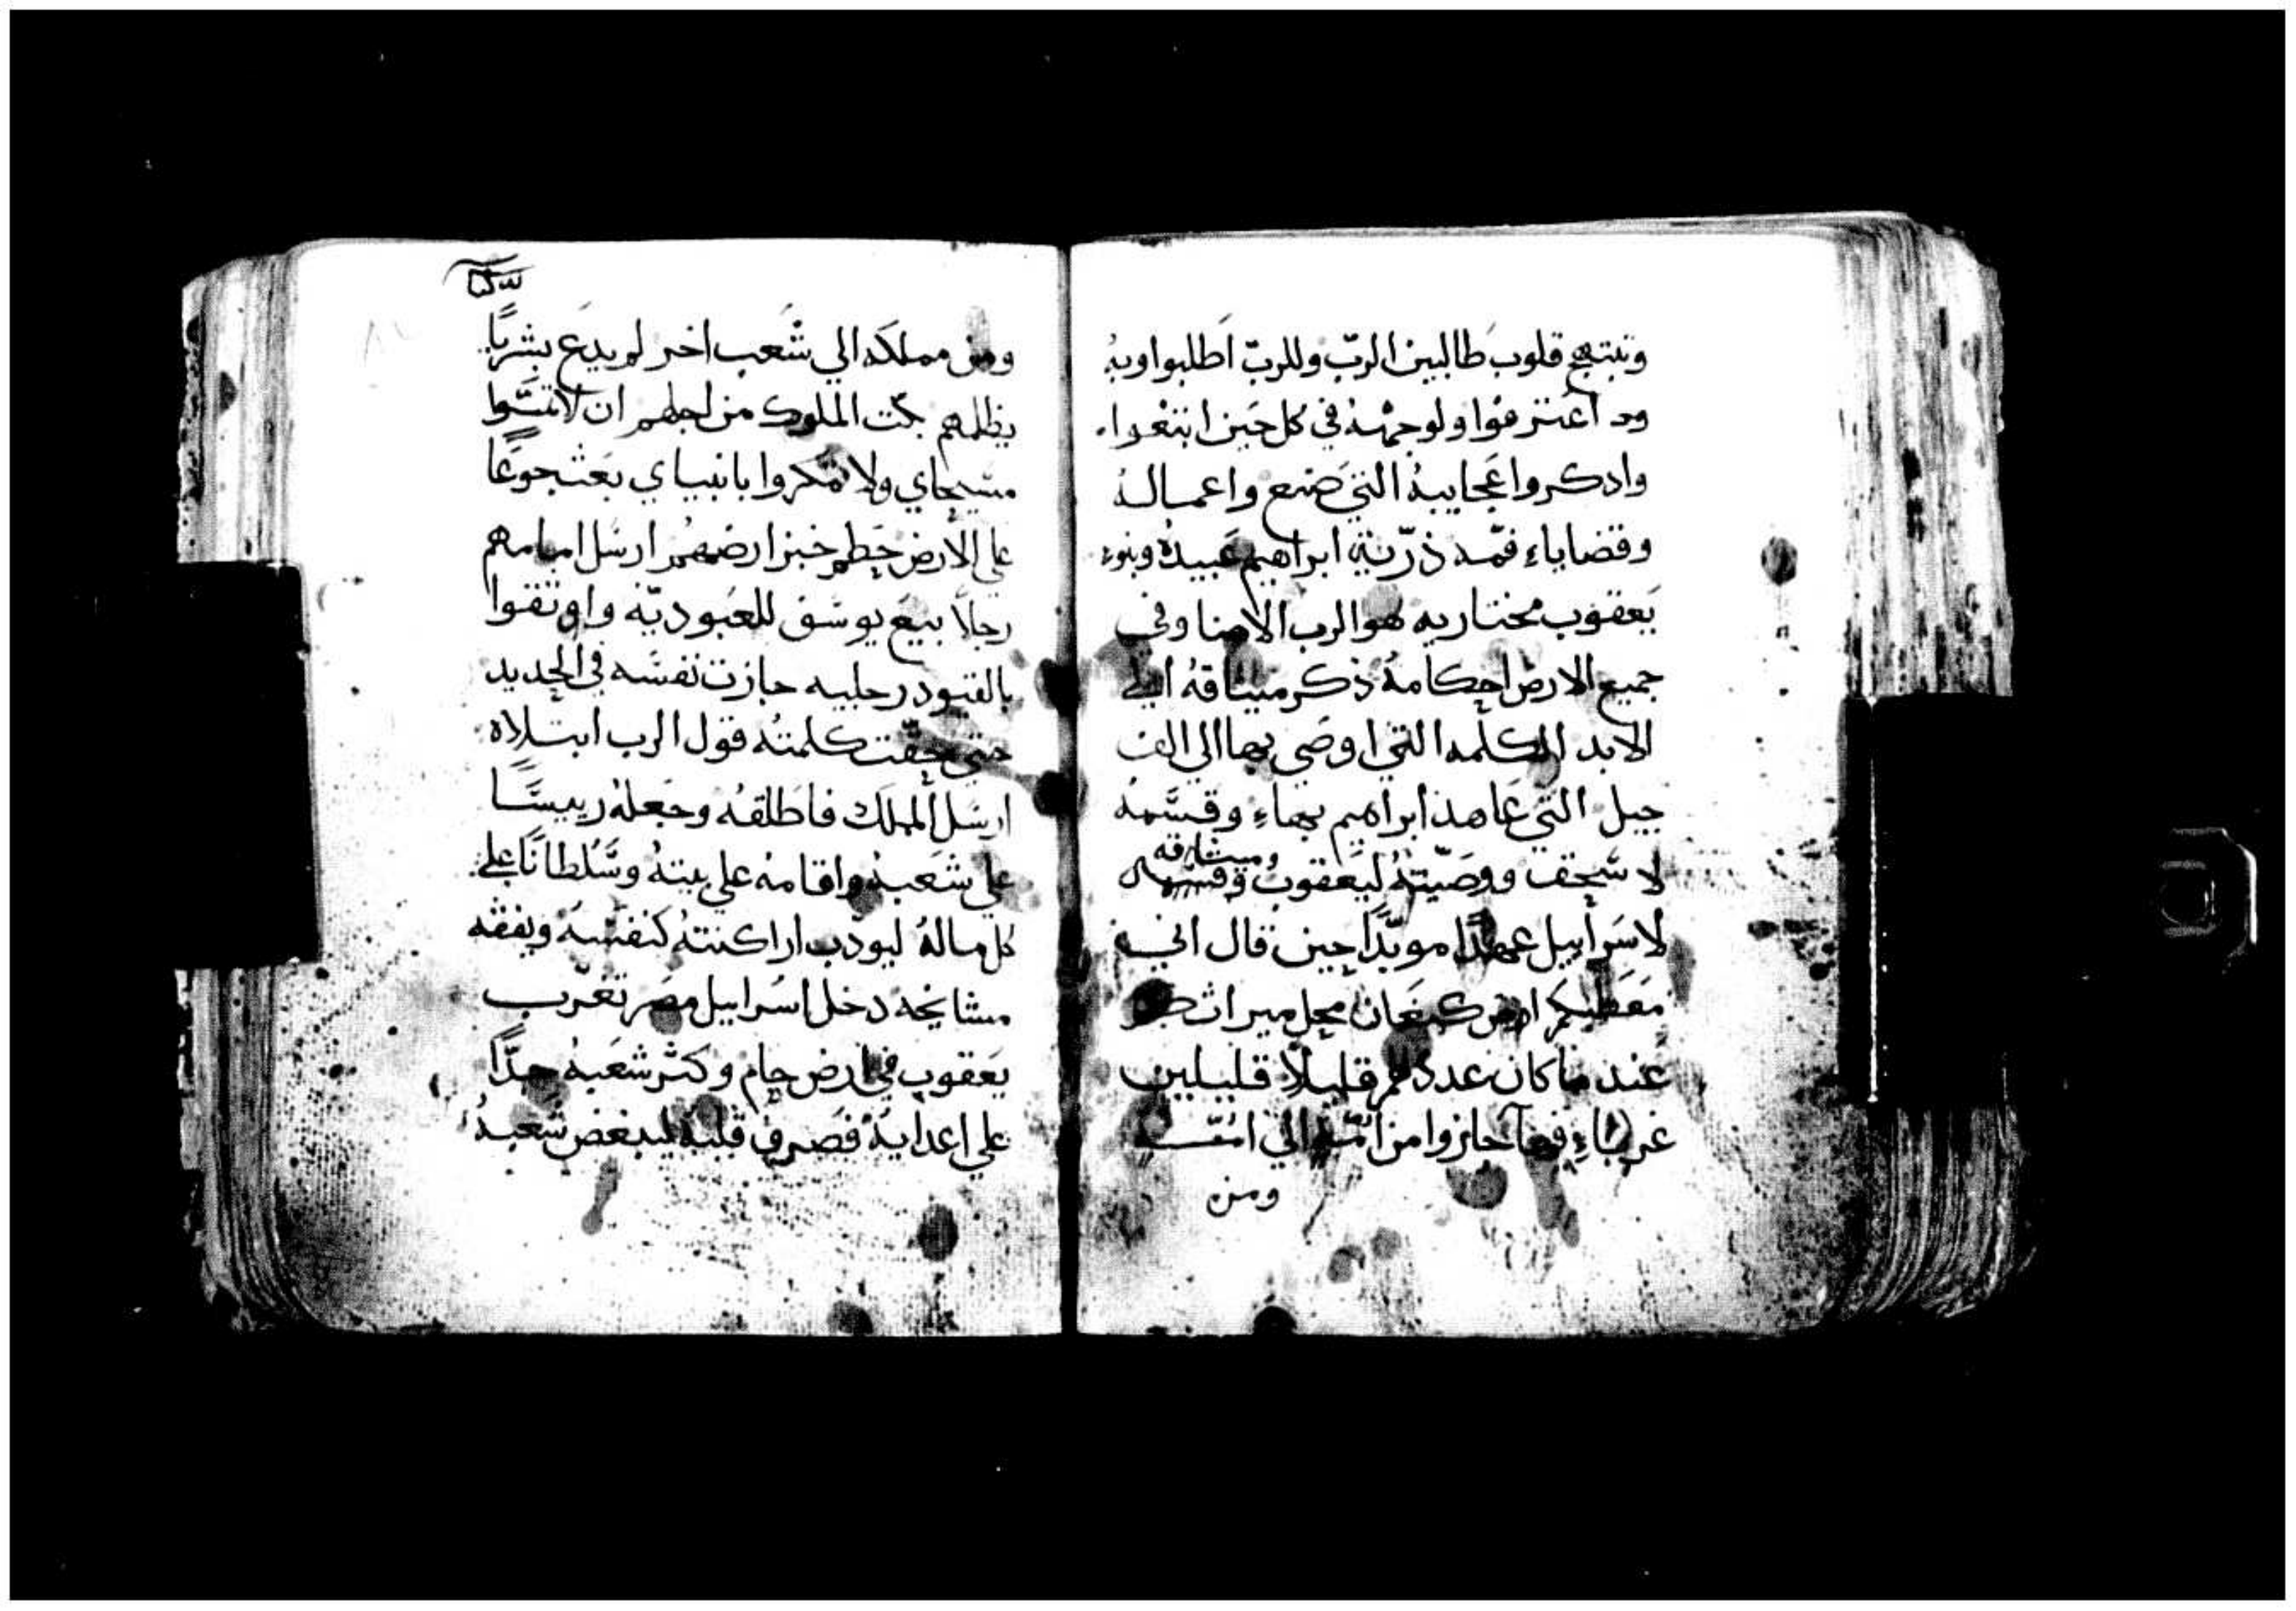 وتبتهج قلوب طالبين الرب وللرب اطلبوا وبه
اعترفوا ولوجهه في كل حين ابتغوا
واذكروا عجايبه التي صنع واعماله
وقضاياه فمه ذرية ابراهيم عبيده وبنو
يعقوب مختاريه هو الرب الاهنا وفي
جميع الارض احكامه ذكر ميثاقه الي
الابد الكلمه التي اوصي بها الي الف
جيل التي عاهد ابراهيم بها وقسمه
لاسحق ووصيته ليعقوب وميثاقه
لاسراييل عهدا موبدا حين قال اني
معطيكم ارض كنعان محل ميراثكم
عند ما كان عددهم قليلا قليلين
غرباء فيها جازوا من امه الي امه
ومن
ومن مملكه الي شعب اخر لم يدع بشريا
يظلمهم بكت الملوك من اجلهم ان لا تمسوا
مسيحاي ولا تمكروا بانبياي بعث جوعا
علي الارض حطم خبز ارضهم ارسل امامهم
رجلا بيع يوسف للعبوديه واوثقوا
بالقيود رجليه جازت نفسه في الحديد
حتي حقت كلمته قول الرب ابتلاه
ارسل الملك فاطلقه وجعله رييسا
علي شعبه واقامه علي بيته وسلطانا علي
كل ماله ليودب اراكنته كنفسه ويفقه
مشايخه دخل اسراييل مصر تغرب
يعقوب في ارض حام وكثر شعبه جدا
علي اعدايه فصرف قلبه ليبغض شعبه